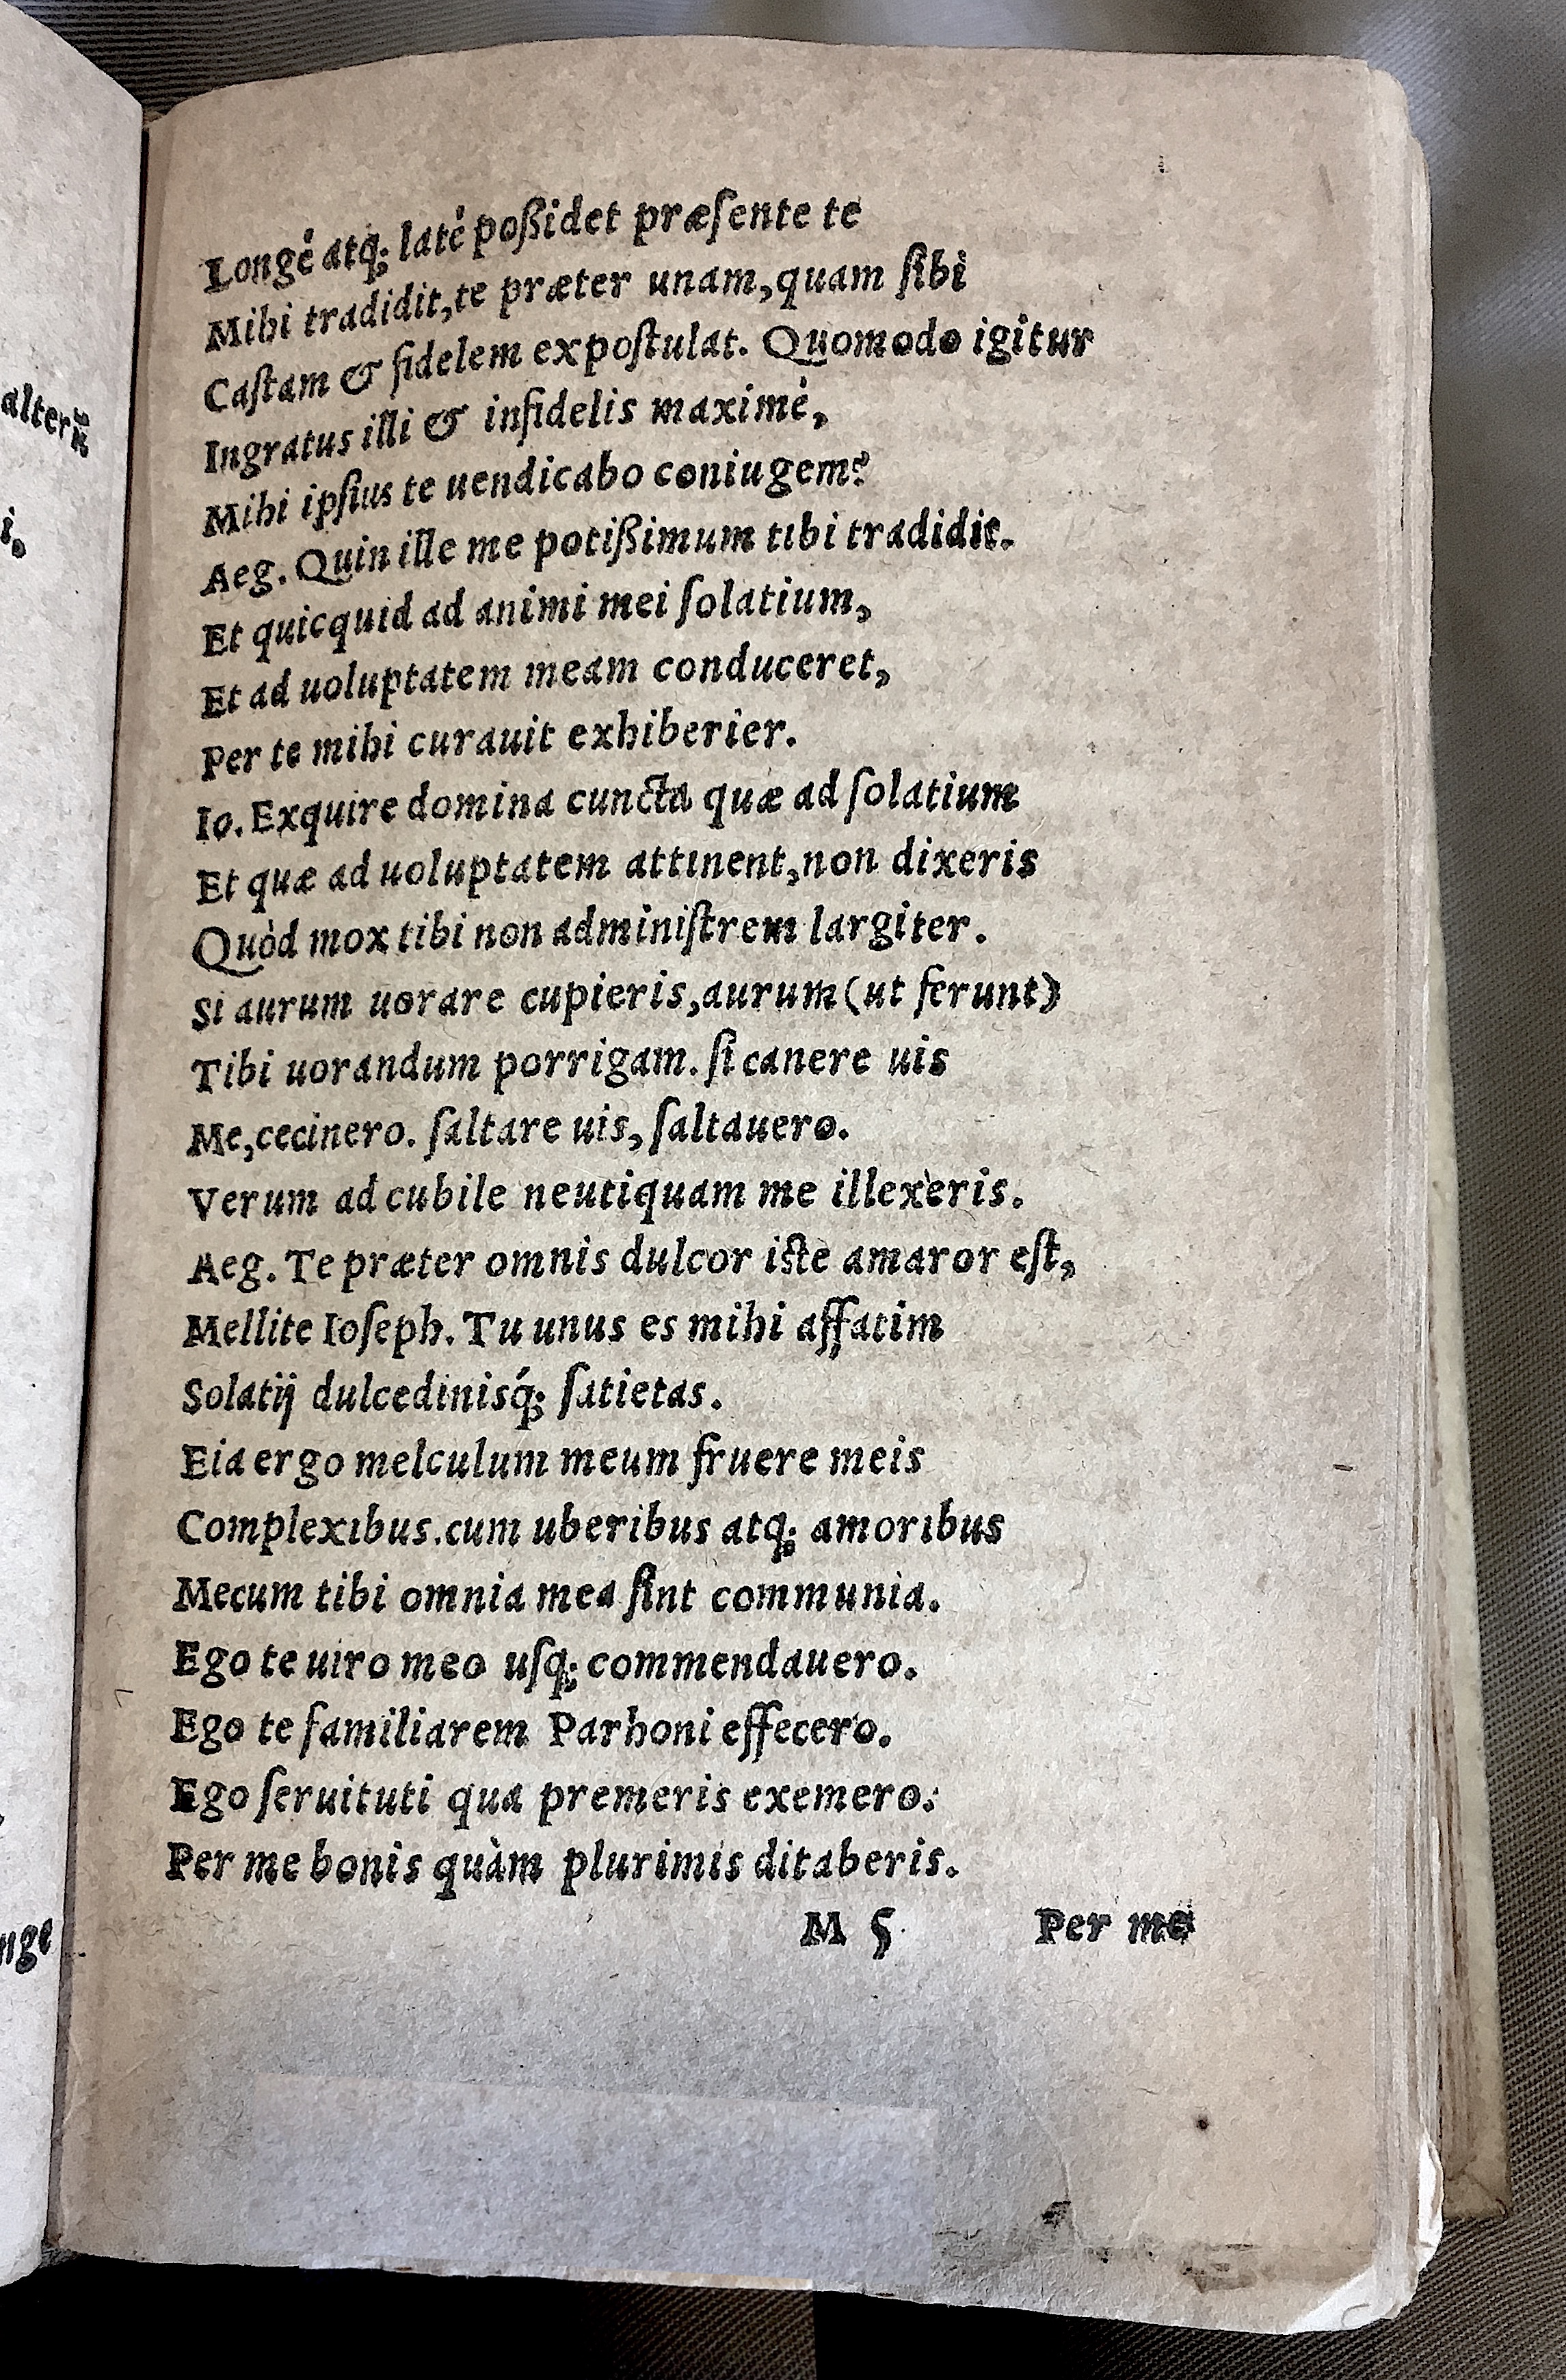 alterũ
i.
nge
Longè atq; latè poßidet præſente te
Mihi tradidit, te præter unam, quam ſibi
Caſtam & fidelem expoſtulat. Quomodo igitur
Ingratus illi & infidelis maximè,
Mihi ipſius te uendicabo coniugem?
Aeg. Quin ille me potißimum tibi tradidit.
Et quicquid ad animi mei ſolatium,
Et ad uoluptatem meam conduceret,
Per te mihi curauit exhiberier.
Io. Exquire domina cuncta quæ ad ſolatium
Et quæ ad uoluptatem attinent, non dixeris
Quòd mox tibi non adminiſtrem largiter.
Si aurum uorare cupieris, aurum (ut ferunt)
Tibi uorandum porrigam. ſi canere uis
Me, cecinero. ſaltare uis, ſaltauero.
Verum ad cubile neutiquam me illexeris.
Aeg. Te præter omnis dulcor iſte amaror eſt,
Mellite Ioſeph. Tu unus es mihi affatim
Solatij dulcedinisq́; ſatietas.
Eia ergo melculum meum fruere meis
Complexibus. cum uberibus atq; amoribus
Mecum tibi omnia mea ſint communia.
Ego te uiro meo uſq; commendauero.
Ego te familiarem Parhoni effecero.
Ego ſeruituti qua premeris exemero:
Per me bonis quàm plurimis ditaberis.
M 5 Per me